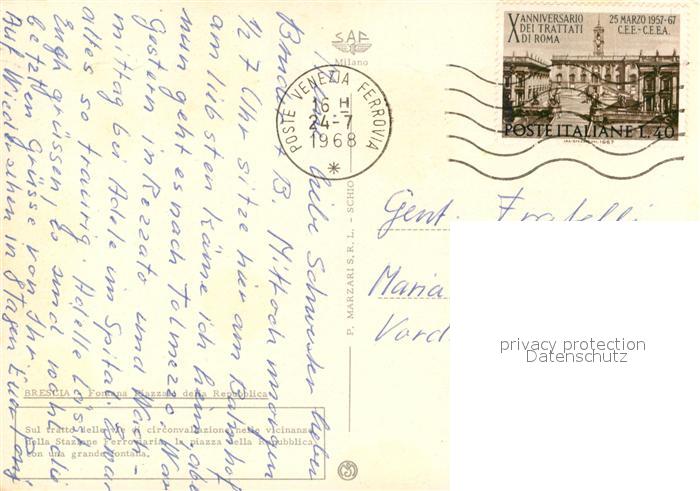 SAF
Milano
X ANNIVERSARIO
DEI TRATTATI
DI ROMA
25 MARZO 1957-67
C.E.E.-C.E.E.A.
POSTE ITALIANE L. 40
POSTE VENEZIA FERROVIA
16 H
24-7
1968
Liebe Schwester lieber
Bruder B. Mittwoch morgen
1/2 7 Uhr sitze hier am Bahnhof
am liebsten käme ich heim, aber
nun geht es nach Tolmezzo. War
Gestern in Rezzato und Nach-
mittag bei Adele im Spital. War
alles so traurig. Adelle lässt
Euch grüssen, es sind wohl die
letzten Grüsse von Ihr
Auf Wiedersehen in Tagen Euer
P. MARZARI S.R.L. - SCHIO
BRESCIA - Fontana Piazzale della Repubblica
Sul tratto delle vie di circonvallazione nelle vicinanze
della Stazione Ferroviaria, la piazza della Repubblica
con una grande fontana.
Gent. Fratelli
Maria
Vord
privacy protection
Datenschutz